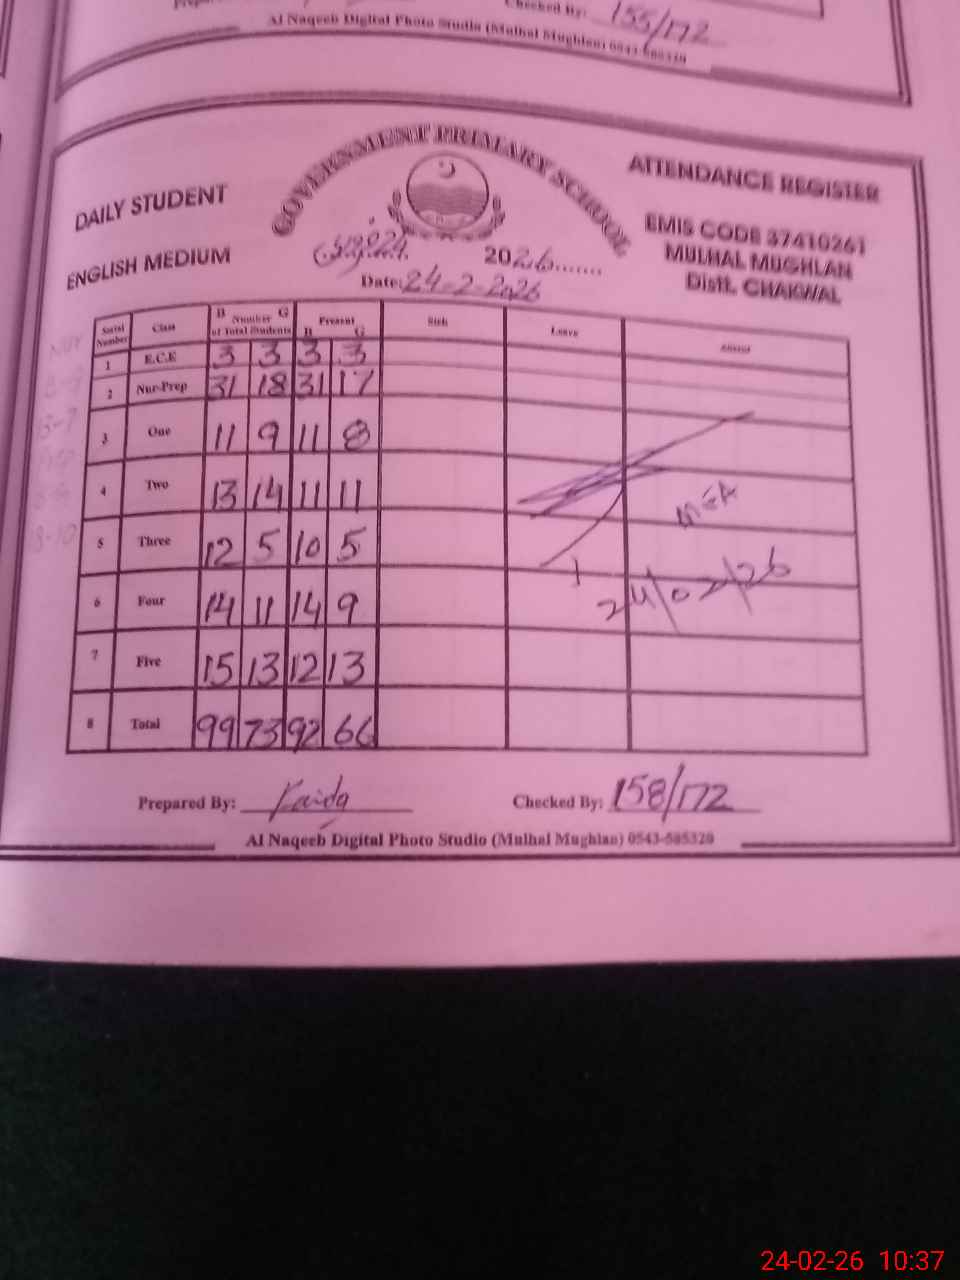 Checked By: 155/172
Al Naqeeb Digital Photo Studio (Mulhal Mughlan) 0543-585320
GOVERNMENT PRIMARY SCHOOL
DAILY STUDENT
ATTENDANCE REGISTER
ENGLISH MEDIUM
EMIS CODE 37410261
MULHAL MUGHLAN
Distt. CHAKWAL
2026.......
Date: 24-2-2026
Serial Number Class B Number G of Total Students Present B G Sick Leave Absent
1 E.C.E 3 3 3 3
2 Nur-Prep 31 18 31 17
3 One 11 9 11 8
4 Two 13 14 11 11
5 Three 12 5 10 5
6 Four 14 11 14 9
7 Five 15 13 12 13
8 Total 99 73 92 66
MEA
24/02/26
Prepared By:
Checked By: 158/172
Al Naqeeb Digital Photo Studio (Mulhal Mughlan) 0543-585320
24-02-26 10:37